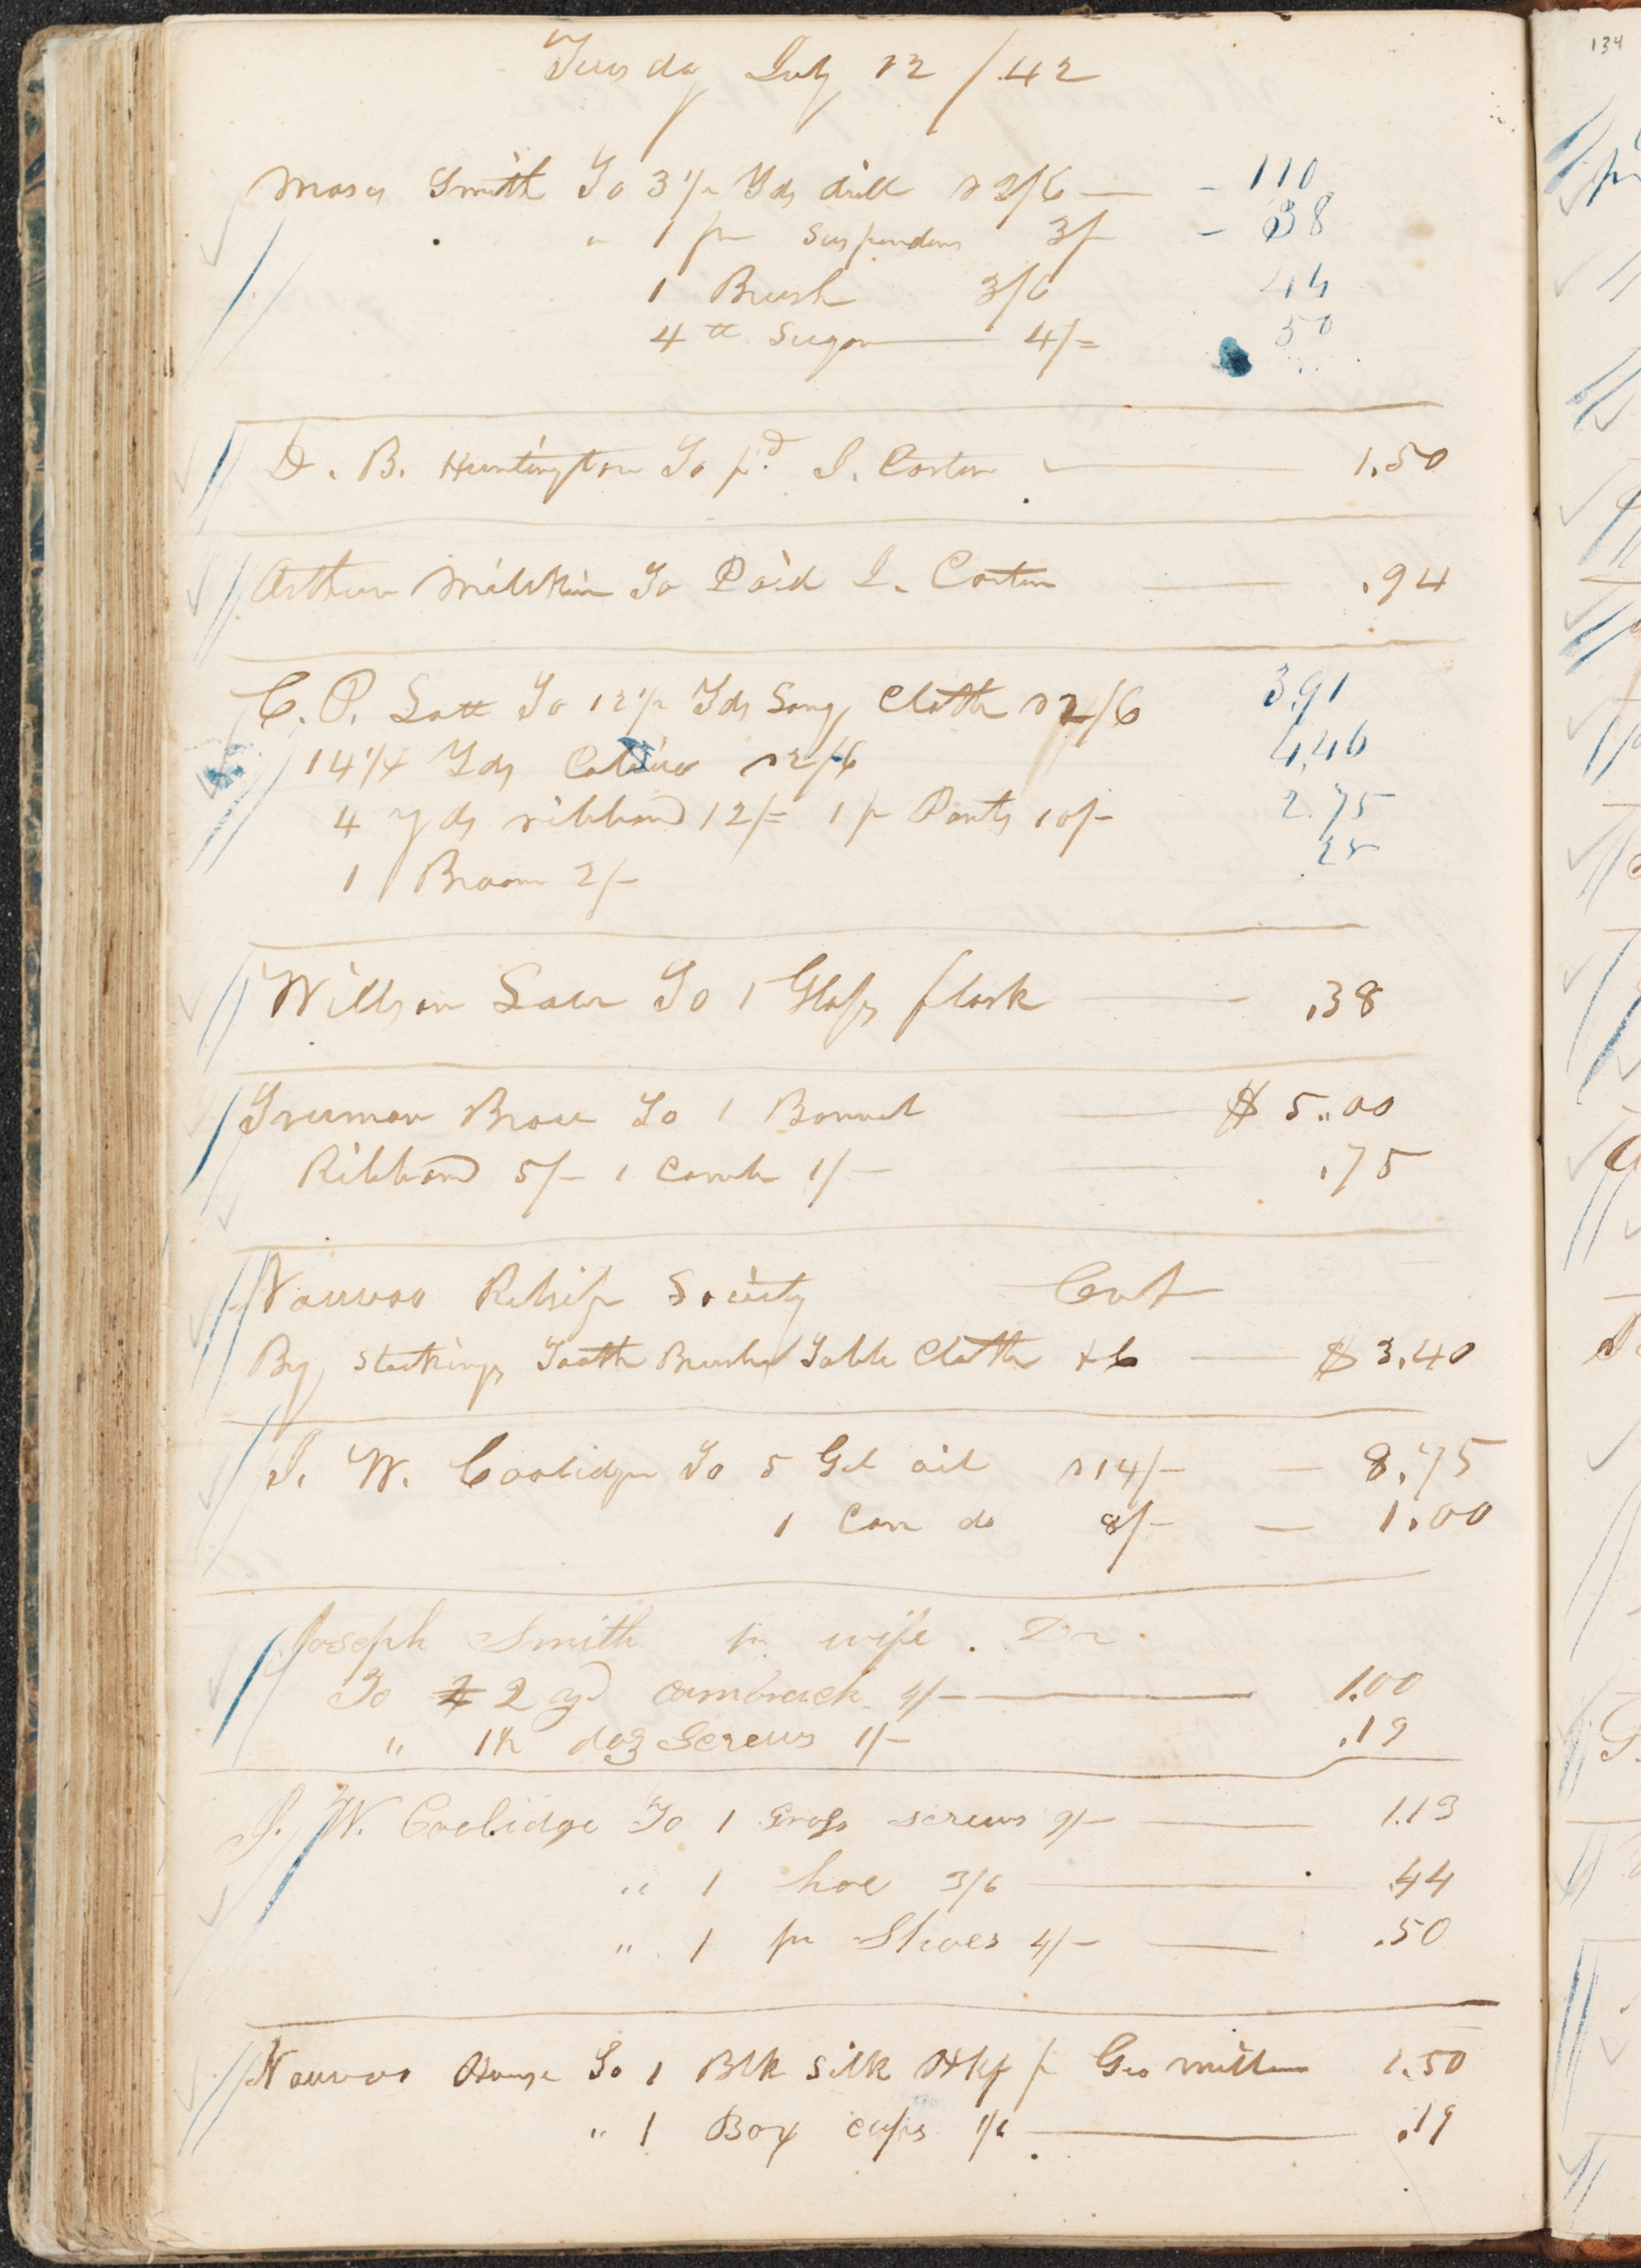 Tuesday July 12 / 42
Moses Smith To 3 1/2 Yds drill 2/6 — 110
" 1 pr suspenders 3/- — 38
1 Brush 3/6 44
4 lb Sugar 4/= 50
D. B. Huntington To pd. J. Carlin 1.50
Arthur Milikin To Paid J. Carlin .94
C. P. Lott To 12 1/2 Yds Cloth 2/6 3.91
14 1/4 Yds Calico 2/6 4.46
4 yds ribband 12/= 1 pr Pants 10/- 2.75
1 Broom 2/- 25
Willson Law To 1 Glass flask .38
Truman Brace To 1 Bonnet $ 5.00
Ribband 5/- 1 Comb 1/- .75
Nauvoo Releif Society Cr
By Stockings Tooth Brushes Table Cloth &c $ 3.40
J. W. Coolidge To 5 Gal oil 14/- — 8.75
1 Can do 8/- — 1.00
Joseph Smith pr wife. Dr.
To 2 yd cambrick 4/- 1.00
" 1 1/2 doz Screws 1/- .19
J. W. Coolidge To 1 Gross screws 9/- 1.13
" 1 hoe 3/6 .44
" 1 pr Shoes 4/- .50
Nauvoo House To 1 Blk Silk Hkf p Geo Miller 1.50
" 1 Box caps 1/6 .19
134